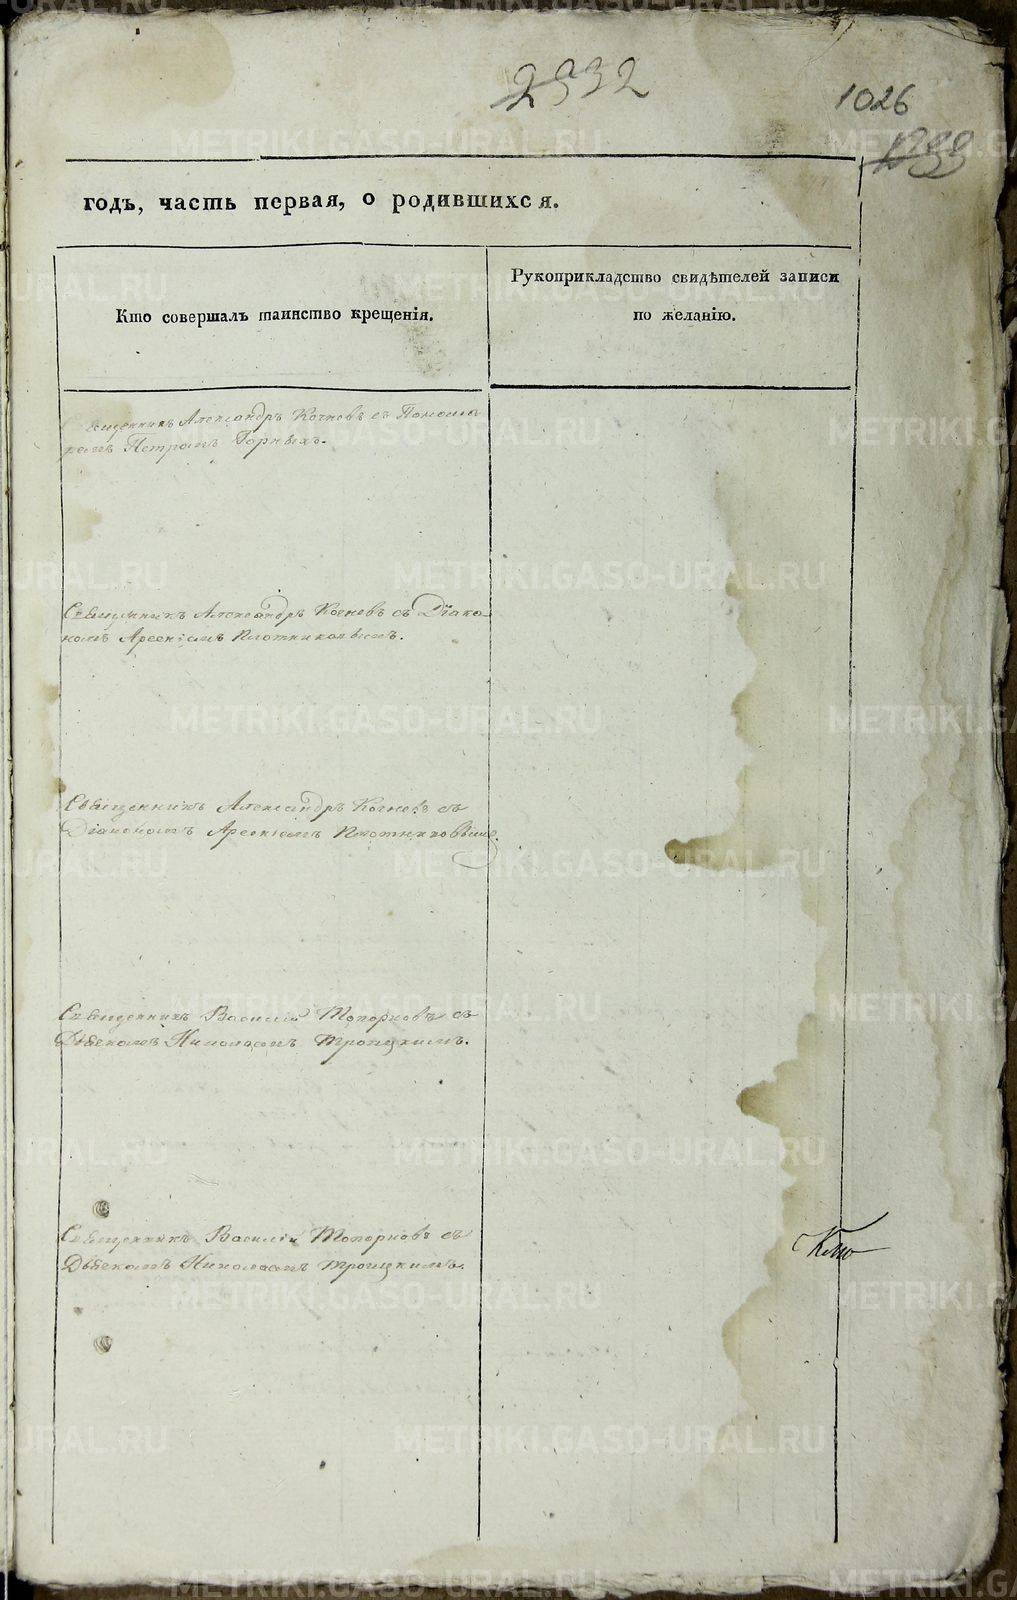 2932
1026
1299
годъ, часть первая, о родившихся.
Кто совершалъ таинство крещенія.
Рукоприкладство свидѣтелей записи
по желанію.
Священникъ Александръ Кочневъ съ Понома
ремъ Петромъ Горныхъ.
Священникъ Александръ Кочневъ съ Діако
номъ Арсеніемъ Плотниковымъ.
Священникъ Александръ Кочневъ съ
Діакономъ Арсеніемъ Плотниковымъ.
Священникъ Василій Топорковъ съ
Дьячкомъ Николаемъ Троицкимъ.
Священникъ Василій Топорковъ съ
Дьячкомъ Николаемъ Троицкимъ.
METRIKI.GASO-URAL.RU